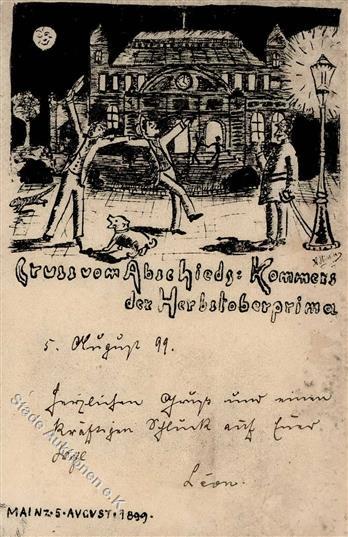 Gruss vom Abschieds: Kommers
der Herbstoberprima
5. August 99.
Herzlichen Gruß und einen
kräftigen Schluck auf Euer
Wohl
Léon.
MAINZ · 5 · AUGUST · 1899 ·
Stade Auktionen e.K.